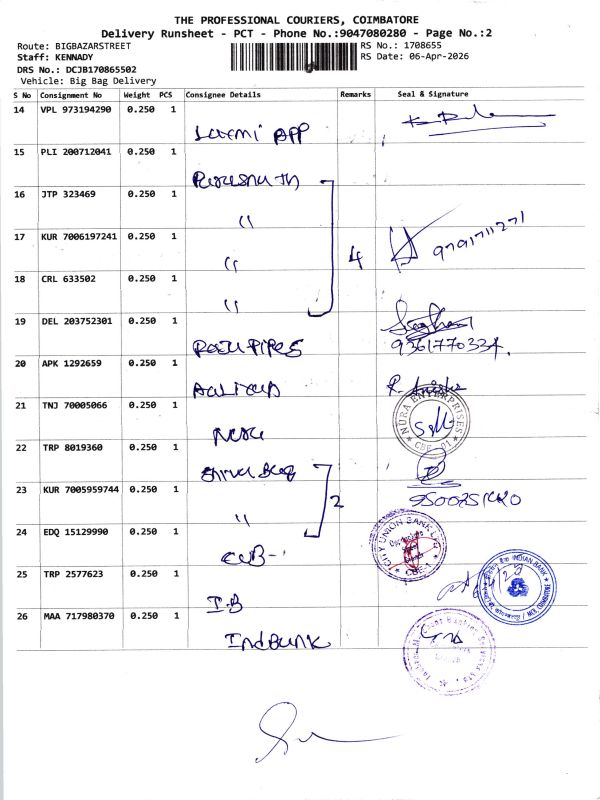 THE PROFESSIONAL COURIERS, COIMBATORE
Delivery Runsheet - PCT - Phone No.:9047080280 - Page No.:2
Route: BIGBAZARSTREET
RS No.: 1708655
Staff: KENNADY
RS Date: 06-Apr-2026
DRS No.: DCJB170865502
Vehicle: Big Bag Delivery
S No Consignment No Weight PCS Consignee Details Remarks Seal & Signature
14 VPL 973194290 0.250 1
Laxmi App
15 PLI 200712041 0.250 1
16 JTP 323469 0.250 1
"
17 KUR 7006197241 0.250 1
" 4 9791711271
18 CRL 633502 0.250 1
"
19 DEL 203752301 0.250 1
Raju Pipes 9361770334.
20 APK 1292659 0.250 1
21 TNJ 70005066 0.250 1
NURA ENTERPRISES CBE-01
22 TRP 8019360 0.250 1
23 KUR 7005959744 0.250 1
" 2
24 EDQ 15129990 0.250 1
CUB- CITY UNION BANK LTD CBE-1
25 TRP 2577623 0.250 1
I.B INDIAN BANK
26 MAA 717980370 0.250 1
IndBunk